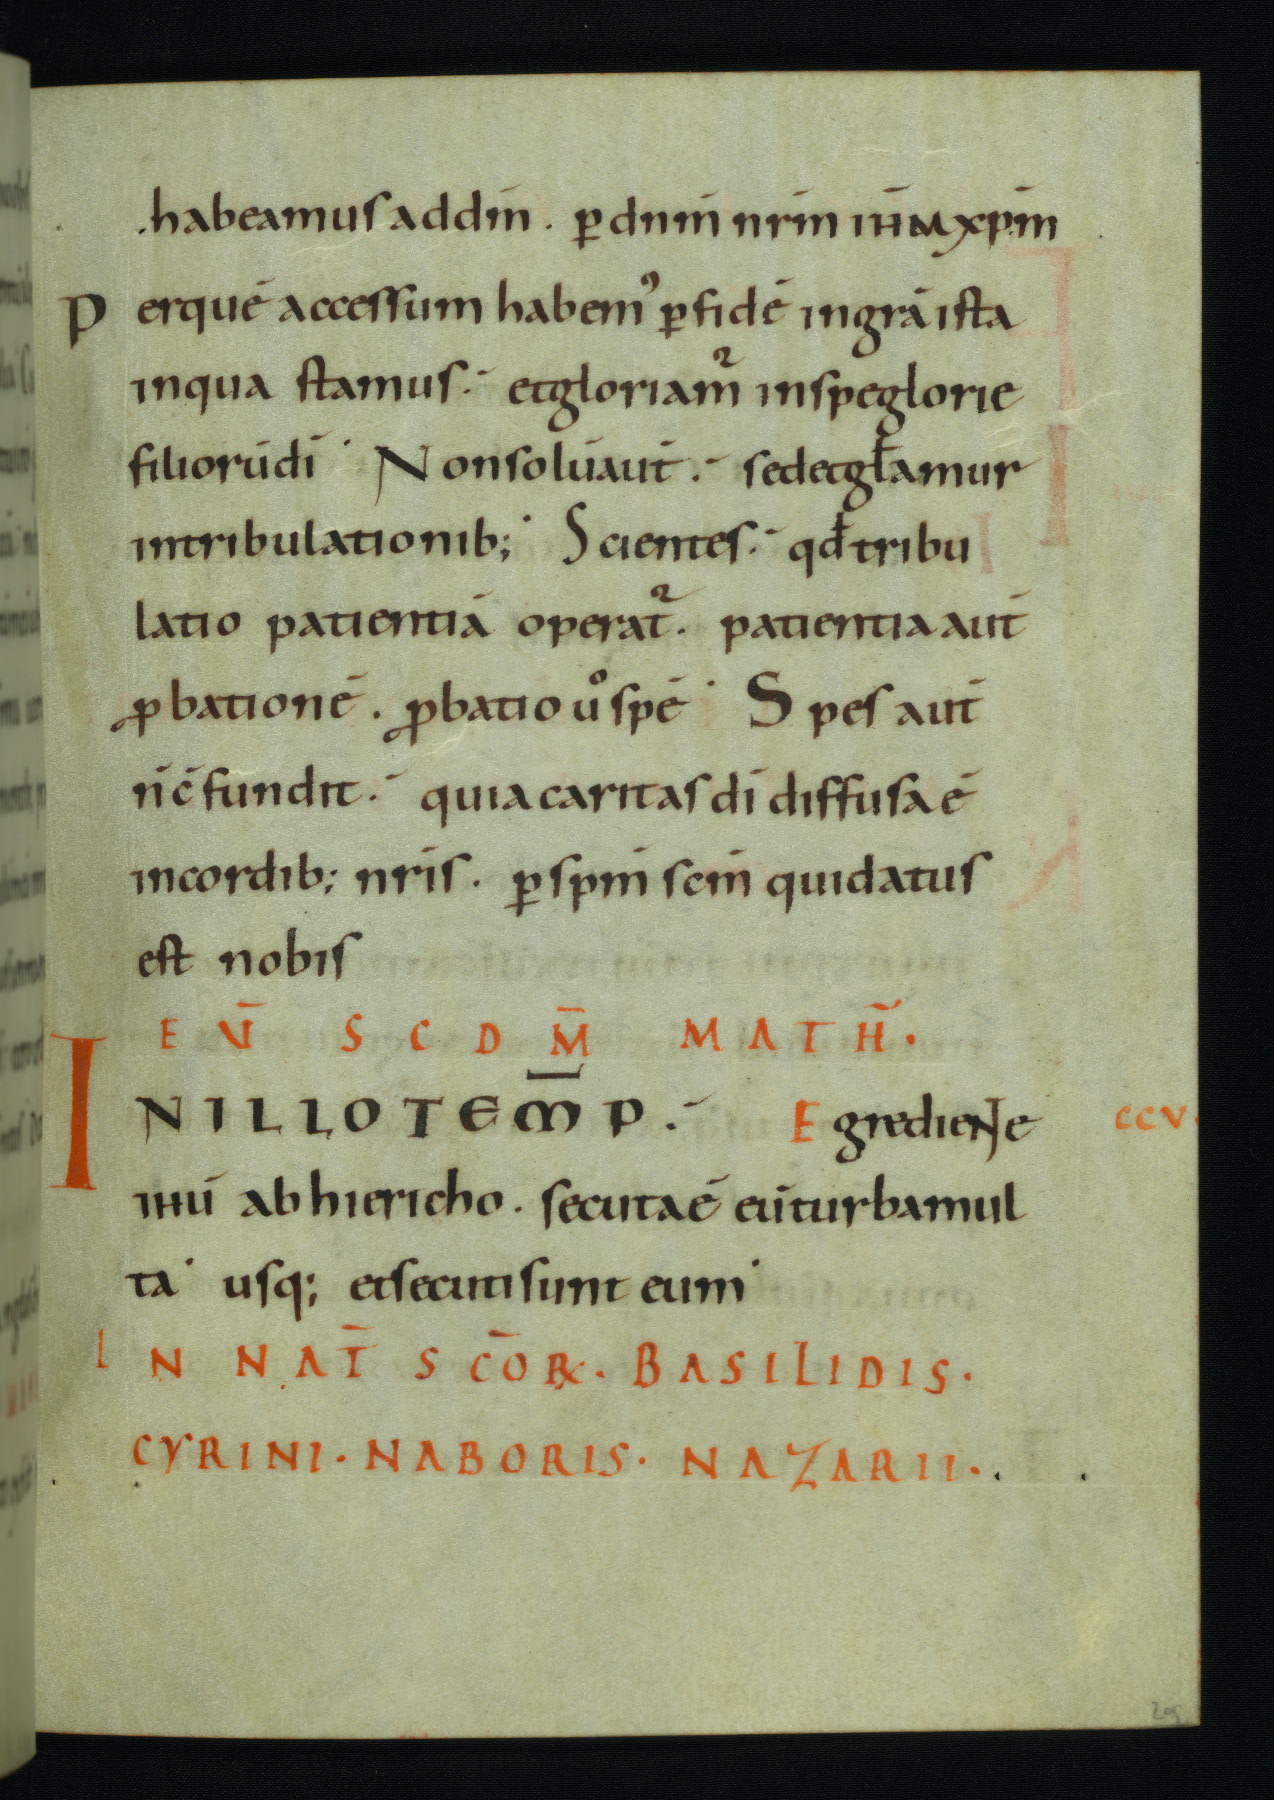 habeamus ad dm̄. ꝑ dnm̄ nrm̄ ihm̄ xpm̄
Per quē accessum habem᾽ ꝑ fidē in grā ista
in qua stamus. et gloriam̄ in spe glorie
filiorū dī Non solū aut̄. sed et głamur
in tribulationib; Scientes. qđ tribu
latio patientiā operat̄. patientia aut̄
ꝓbationē. ꝓbatio ůo spē Spes aut̄
n̄ c̄fundit. quia caritas dī diffusa ē
in cordib; nrīs. ꝑ spm̄ scm̄ qui datus
est nobis
EV̄ SCDM̄ MATH̄.
IN ILLO TEM̄P. Egrediente CCV
ihū ab hiericho. secuta ē eū turba mul
ta usq; et secuti sunt eum
IN NAT̄ SC̄OꝜ. BASILIDIS.
CYRINI. NABORIS. NAZARII.
205